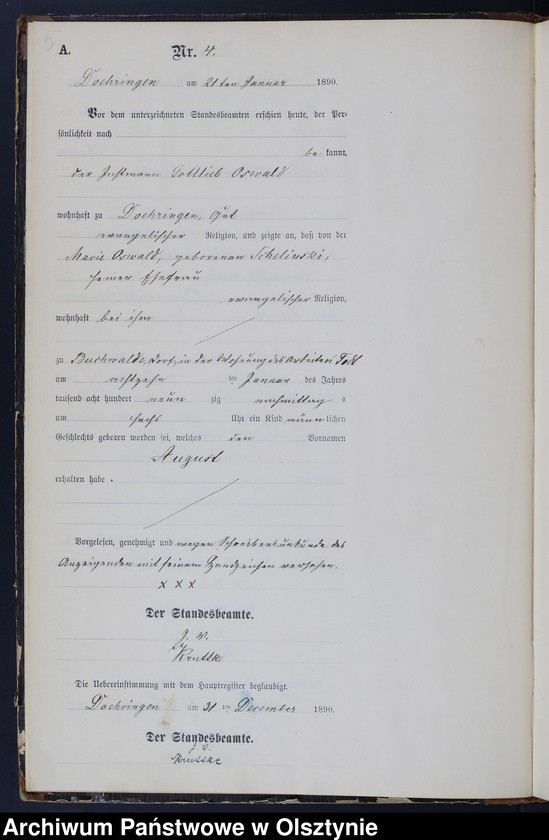 5
A. Nr. 4.
Doehringen am 21ten Januar 1890.
Vor dem unterzeichneten Standesbeamten erschien heute, der Per-
sönlichkeit nach
be kannt,
der Instmann Gottlieb Oswald
wohnhaft zu Doehringen, Gut
evangelischer Religion, und zeigte an, daß von der
Marie Oswald, geborenen Schelinski,
seiner Ehefrau
evangelischer Religion,
wohnhaft bei ihm
zu Buchwalde, Dorf, in der Wohnung des Arbeiters
am achtzehn ten Januar des Jahres
tausend acht hundert neun zig nachmittag s
um sechs Uhr ein Kind männ lichen
Geschlechts geboren worden sei, welches den Vornamen
August
erhalten habe .
Vorgelesen, genehmigt und wegen Schreibensunkunde des
Anzeigenden mit seinem Handzeichen versehen.
x x x
Der Standesbeamte.
J. V.
Kruttke
Die Uebereinstimmung mit dem Hauptregister beglaubigt.
Doehringen am 31 ten December 1890.
Der Standesbeamte.
J. V.
Kruttke
Archiwum Państwowe w Olsztynie